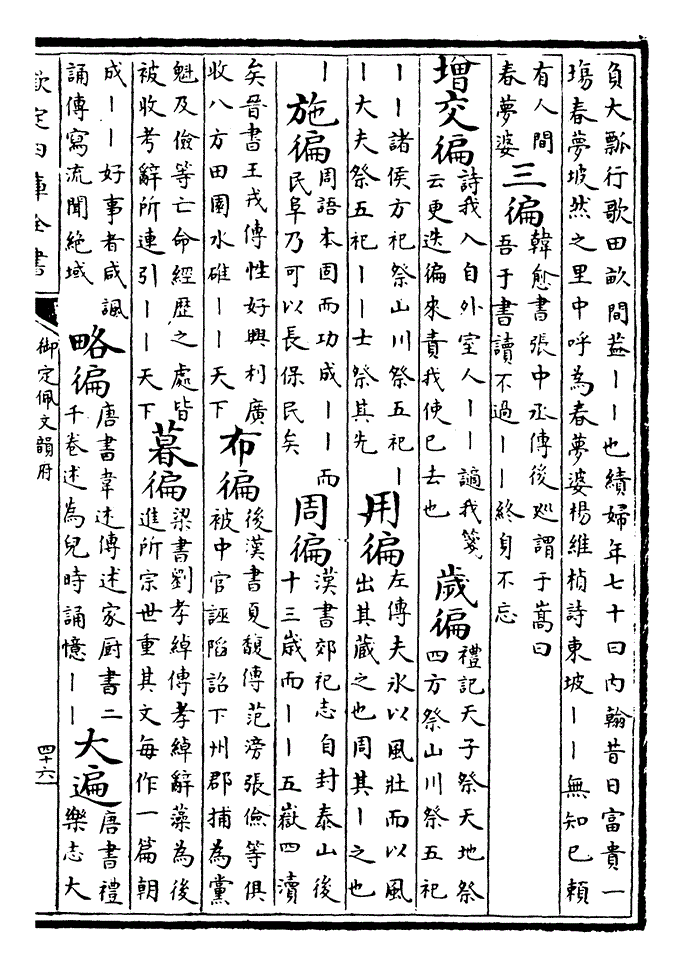 負大瓢行歌田畝間葢丨丨也績婦年七十曰内翰昔日富貴一
塲春夢坡然之里中呼為春夢婆楊維楨詩東坡丨丨無知已頼
有人間
春夢婆
三徧
韓愈書張中丞傳後廵謂于嵩曰
吾于書讀不過丨丨終身不忘
增交徧
詩我入自外室人丨丨讁我箋
云更迭徧來責我使已去也
歲徧
禮記天子祭天地祭
四方祭山川祭五祀
丨丨諸侯方祀祭山川祭五祀丨
丨大夫祭五祀丨丨士祭其先
用徧
左傳夫氷以風壯而以風
出其藏之也周其丨之也
丨
施徧
周語本固而功成丨丨而
民阜乃可以長保民矣
周徧
漢書郊祀志自封泰山後
十三歲而丨丨五嶽四瀆
矣晉書王戎傳性好興利廣
收八方田園水碓丨丨天下
布徧
後漢書夏馥傳范滂張儉等俱
被中官誣陷詔下州郡捕為黨
魁及儉等亡命經歷之處皆
被收考辭所連引丨丨天下
暮徧
梁書劉孝綽傳孝綽辭藻為後
進所宗世重其文每作一篇朝
成丨丨好事者咸諷
誦傳寫流聞絶域
略徧
唐書韋述傳述家厨書二
千卷述為兒時誦憶丨丨
大遍
唐書禮
樂志大
欽定四庫全書
御定佩文韻府
四十六